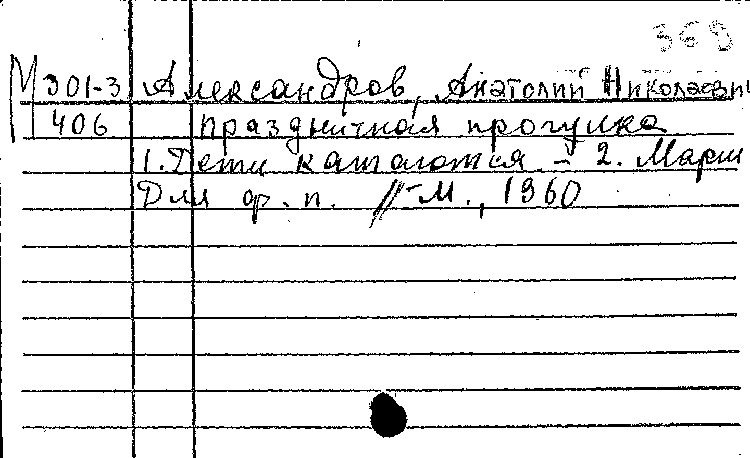 369
М 301-3 Александров, Анатолий Николаевич
406 Праздничная прогулка
1. Дети катаются – 2. Марш
Для ф.п. //-М., 1960